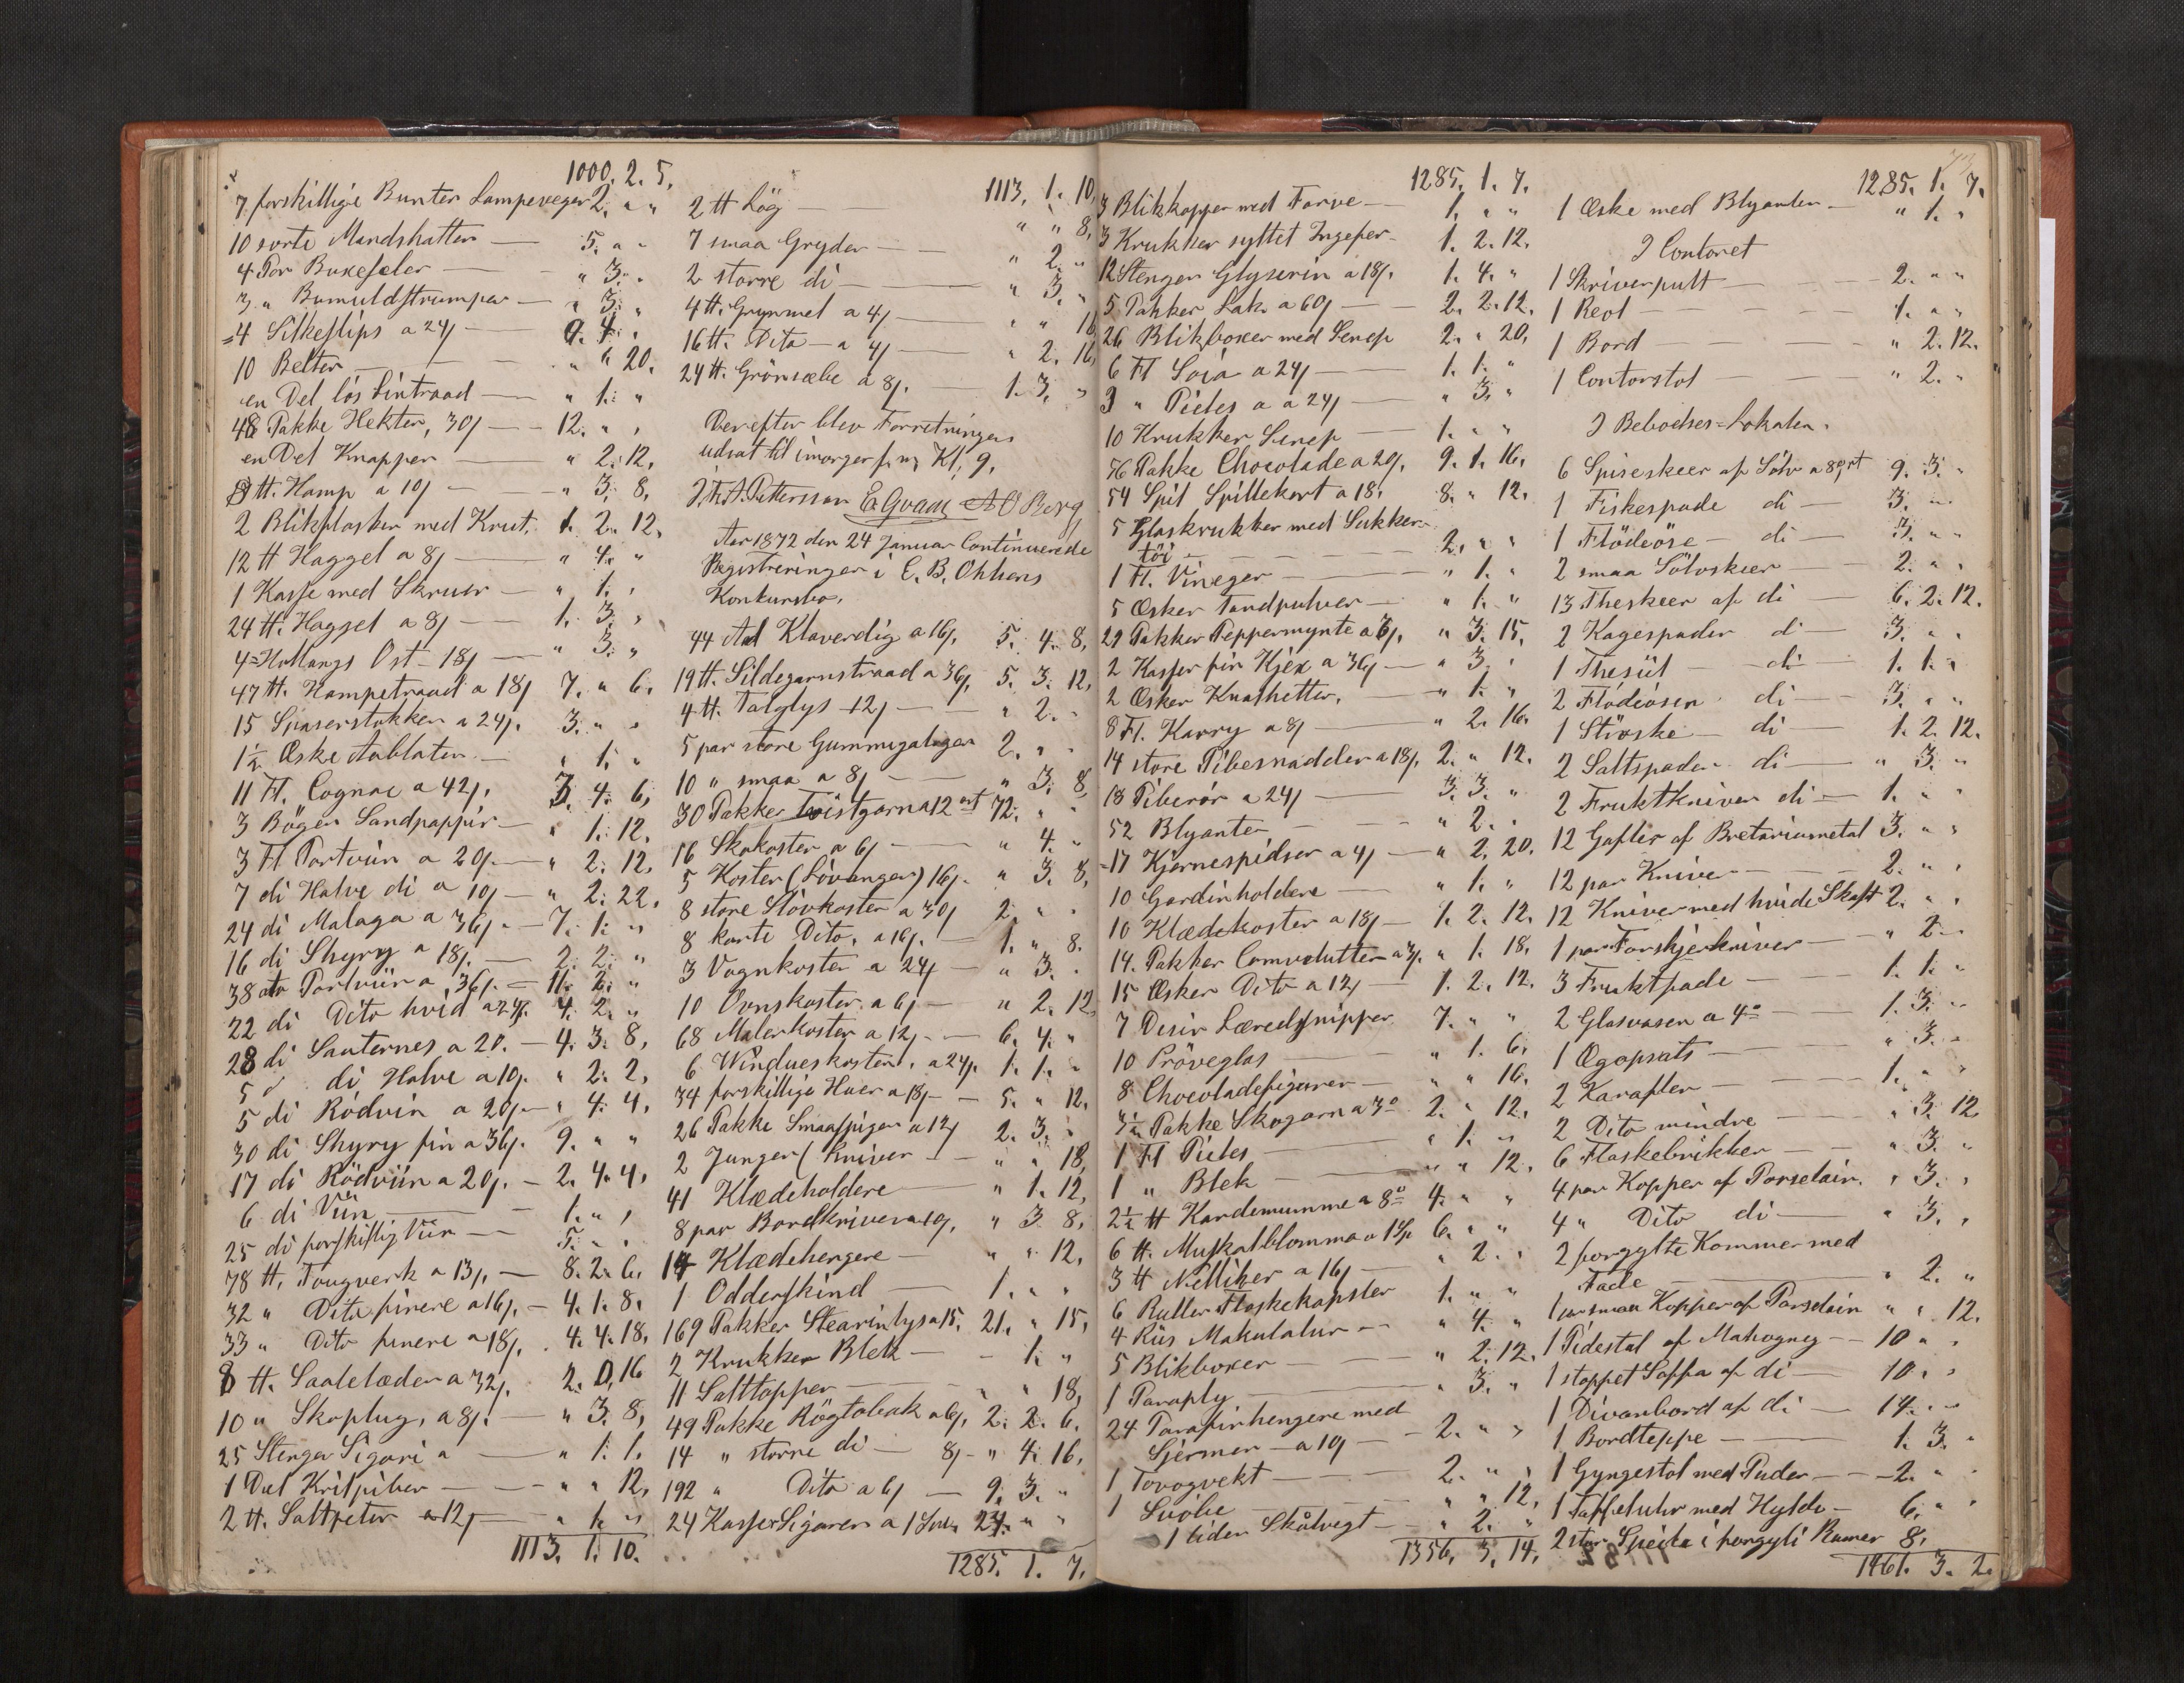 1000. 2. 5.
7 forskillige Bunter Lampeveger 2. " "
10 sorte Mandshatter — 5. " "
4 Par Buxeseler — " 3. "
3 " Bumuldstrumper — " 3. "
4 Silkeslips a 24 — 4. "
10 Belter — " " 20.
en Del lös Sintraad — " 1. "
48 Pakke Hekter, 30 — 12. " "
en Del Knapper — " 2. 12.
8 tt. Hamp a 10 — " 3. 8.
2 Blikflasker med Krut. 1. 2. 12.
12 tt Haggel a 8 — " 4. "
1 Kasse med Skruer — " 1. "
24 tt. Haggel a 8 — 1. 3. "
4 Hollangs Ost 18 — " 3. "
47 tt. Hampetraad a 18 7. " 6.
15 Spaserstokker a 24. 3. " "
1½ Eske Aablater — " 1. "
11 Fl. Cognac a 42. 3. 4. 6.
3 Böger Sandpappir — " 1. 12.
3 Fl Portviin a 20 — " 2. 12.
7 di Halve di a 10 — " 2. 22.
24 di Malaga a 36 — 7. 1. "
16 di Shyry a 18. — 2. 2. "
38 di Portviin a 36. — 11. 2. "
22 di Dito hvid a 24. 4. 2. "
28 di Sauternes a 20. — 4. 3. 8.
5 di Halve a 10. " 2. 2.
5 di Rödvin a 20 — " 4. 4.
30 di Shyry fin a 36. 9. " "
17 di Rödviin a 20. — 2. 4. 4.
6 di Viin — 1. " "
25 di forskillig Viin — 5. " "
78 tt. Tougverk a 13. — 8. 2. 6.
32 " Dito finere a 16. — 4. 1. 8.
33 " Dito finere a 18. 4. 4. 18.
8 tt. Saalelæder a 32. 2. 0. 16
10 " Skoplug, a 8. — " 3. 8.
25 Stenger Sigari a — " 1. 1.
1 Del Kritpiber — " " 12.
2 tt. Saltpeter a 12 — " 1. "
1113. 1. 10.
1113. 1. 10.
2 tt Lög — " " 8.
7 smaa Gryder — " 2. "
2 större di — " 3. "
4 tt. Grynmel a 4 — " " 16
16 tt. Dito — a 4 — " 2. 16.
24 tt. Grönsæbe a 8. — 1. 3. "
Derefter blev Forretningen
udsat til imorgen fm Kl. 9.
Pettersson E. Qvam A O Berg
Aar 1872 den 24 Januar Continuerede
Registreringen i C. B. Ohlsens
Konkursbo.
44 Al Klaverdig a 16. 5. 4. 8.
19 tt. Sildegarnstraad a 36. 5. 3. 12.
4 tt. Talglys 12 — " 2. "
5 par store Gummigalager 2. " "
10 " smaa a 8 — " 3. 8
30 Pakker Tvistgarn a 12 ort 72. " "
16 Skokoster a 6 — " 4. "
5 Koster (Lövanger) 16. " 3. 8.
8 store Stövkoster a 30 2. " "
8 korte Dito. a 16. — 1. " 8.
3 Vognkoster a 24 — " 3. "
10 Ovnskoster a 6 — " 2. 12
68 Malerkoster a 12. — 6. 4. "
6 Windueskoster. a 24. 1. 1. "
34 forskillige Huer a 18 — 5. " 12.
26 Pakke Smaaspiger a 12 2. 3. "
2 Junger (Kniver — " " 18.
41 Klædeholdere — " 1. 12.
8 par Bordkniver a 10. " 3. 8.
14 Klædehengere — " " 12.
1 Odderskind — 1. " "
169 Pakker Stearinlys a 15. 21. " 15.
2 Krukker Blek — " 1. "
11 Salttopper — " " 18.
49 Pakke Rögtobak a 6. 2. 2. 6.
14 " större di — 8 — " 4. 16.
192 " Dito a 6 — 9. 3. "
24 Kasser Sigarer a 1 24. " "
1285. 1. 7.
1285. 1. 7.
3 Blikkopper med Farve — 1. " "
3 Krukker syltet Ingefer — 1. 2. 12.
12 Stenger Glyserin a 18. 1. 4. "
5 Pakker Lak a 60 — 2. 2. 12.
26 Blikboxer med Senep 2. " 20.
6 Fl Soia a 24 — 1. 1. "
3 " Picles a a 24 — " 3. "
10 Krukker Senep — 1. " "
76 Pakke Chocolade a 20. 9. 1. 16.
54 Spil Spillekort a 18. 8. " 12.
5 Glaskrukker med Sukker-
töi — 2. " "
1 Fl. Vineger — " 1. "
5 Esker Tandpulver — " 1. "
29 Pakker Peppermynte a 3. " 3. 15.
2 Kasser fin Kjex a 36 — " 3. "
2 Esker Knalhetter. — " 1. "
8 Fl. Karry a 8 — " 2. 16.
14 store Pibesnadder a 18. 2. " 12.
18 Piberör a 24 — 3. 3. "
52 Blyanter — " 2. "
17 Kjernespidser a 4 — " 2. 20.
10 Gardinholdere — " 1. "
10 Klædekoster a 18 — 1. 2. 12.
14. Pakker Comvolutter a 3. " 1. 18.
15 Esker Dito a 12 — 1. 2. 12.
7 Desin Læredssnipper 7. " "
10 Pröveglas — " 1. 6.
8 Chocoladefigurer — " " 16.
Pakke Skogarn a 3 2. " 12.
1 Fl Picles — " 1. "
1 " Blek — " " 12.
2½ tt Kardemumme a 8 4. " "
6 tt. Muskalblomma a 6. " "
3 tt Nelliker a 16 — " 2. "
6 Ruller Flaskekapsler 1. " "
4 Riis Makulatur — " 4. "
5 Blikboxer — " 2. 12.
1 Paraply — " 3. "
24 Parafinhengere med
Sjermer — a 10 — 2. " "
1 Tovogvekt — 2. " "
1 — " " 12.
1 liden Skålvegt — " 2. "
1356. 3. 14.
1285. 1. 7.
1 Eske med Blyanter — " 1. "
I Contoret
1 Skriverpult — 2. " "
1 Reol — 1. " "
1 Bord — " 2. 12.
1 Contorstol — " 2. "
I Beboelses-Lokalen.
6 Spiseskeer af Sölv a 8 ort 9. 3. "
1 Fiskespade di — 3. " "
1 Flödeöse — di — 3. " "
2 smaa Sölvskeer — 2. " "
13 Theskeer af di — 6. 2. 12.
2 Kagespader di — 3. " "
1 Thesiil — di — 1. 1. "
2 Flödeösen di — 3. " "
1 Ströske — di — 1. 2. 12.
2 Saltspader di — " 3. "
2 Fruktkniver di — 1. " "
12 Gafler af Bretaniametal 3. " "
12 par Kniver — 2. " "
12 Kniver med hvide Skaft 2. " "
1 par Forskjerkniver — " 2. "
3 Fruktfade — 1. 1. "
2 Glasvaser a 4 — 1. 3. "
1 Ægopsats — " 3. "
2 Karafler — 1. " "
2 Dito mindre — " 3. 12
6 Flaskebrikker — " 3. "
4 par Kopper af Porselain. " 3. "
4 " Dito di — " 3. "
2 forgylte Kommer med
Fade — " 2. "
1 par smaa Kopper af Porselain " " 12.
1 Pidestal af Mahogny — 10 " "
1 stoppet Soffa af di — 10. " "
1 Divanbord af di — 14. " "
1 Bordteppe — 1. 3. "
1 Gyngestol med Puder — 2. " "
1 Taffeluhr med Hylde — 6. " "
2 stor Speile i forgylt Ramer 8.
1461. 3. 2.